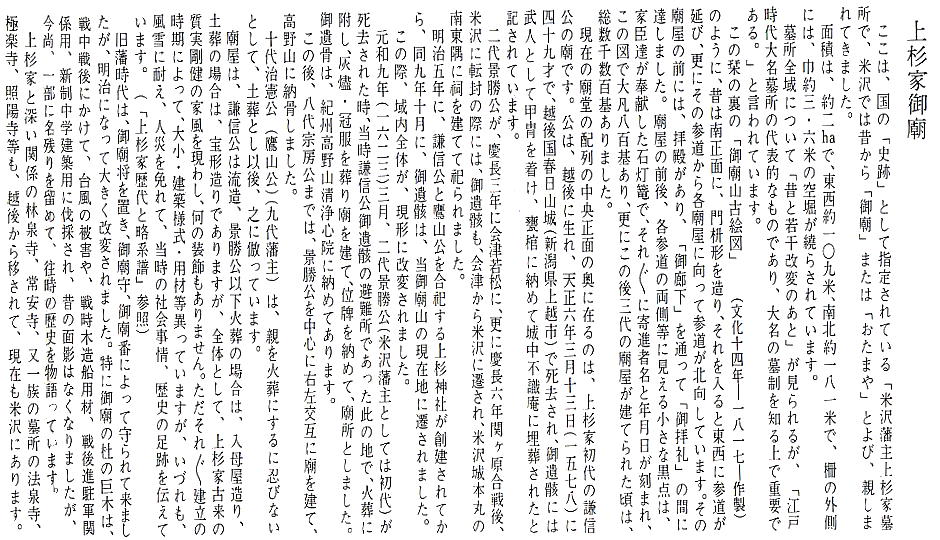 上杉家御廟
ここは、国の「史跡」として指定されている「米沢藩主上杉家墓
所で、米沢では昔から「御廟」または「おたまや」とよび、親しま
れてきました。
面積は、約二haで、東西約一〇九米、南北約一八一米で、柵の外側
には、巾約三・六米の空堀が繞らされています。
墓所全域について「昔と若干改変のあと」が見られるが、「江戸
時代大名墓所の代表的なものであり、大名の墓制を知る上で重要で
ある。」と言われています。
この栞の裏の「御廟山古絵図」（文化十四年―一八一七―作製）
のように、昔は南正面に、門枡形を造り、それを入ると東西に参道が
延び、更にその参道から各廟屋に向って参道が北向しています。その
廟屋の前には、拝殿があり、「御廊下」を通って「御拝礼」の間に
達しました。廟屋の前後、各参道の両側等に見える小さな黒点は、
家臣達が奉献した石灯篭で、それ／″＼に寄進者名と年月日が刻まれ、
この図で大凡八百基あり、更にこの後三代の廟屋が建てられた頃は、
総数千数百基ありました。
現在の廟堂の配列の中央正面の奥に在るのは、上杉家初代の謙信
公の廟です。公は、越後に生れ、天正六年三月十三日（一五七八）に
四十九才で、越後国春日山城（新潟県上越市）で死去され、御遺骸には
武人として甲冑を着け、甕棺に納めて城中不識庵に埋葬されたと
記されています。
二代景勝公が、慶長三年に会津若松に、更に慶長六年、関ヶ原合戦後、
米沢に転封の際には、御遺骸も、会津から米沢に遷され、米沢城本丸の
南東隅に祠を建てて祀られました。
明治五年に、謙信公と鷹山公を合祀する上杉神社が創建されてか
ら、同九年十月に、御遺骸は、当御廟山の現在地に遷されました。
この際、域内全体が、現形に改変されました。
元和九年（一六二三）三月、二代景勝公（米沢藩主としては初代）が
死去された時、当時謙信公御遺骸の避難所であった此の地で、火葬に
附し、灰燼・冠服を葬り廟を建て、位牌を納めて、廟所としました。
御遺骨は、紀州高野山清浄心院に納めてあります。
この後、八代宗房公までは、景勝公を中心に右左交互に廟を建て、
高野山に納骨しました。
十代治憲公（鷹山公）（九代藩主）は、親を火葬にするに忍びない
として、土葬とし以後、之に倣っています。
廟屋は、謙信公は流造、景勝公以下火葬の場合は、入母屋造り、
土葬の場合は、宝形造りでありますが、全体として、上杉家古来の
質実剛健の家風を現わし、何の装飾もありません。ただそれ／″＼建立の
時期によって、大小・建築様式・用材等異っていますが、いづれも、
風雪に耐え、人災を免れて、当時の社会事情、歴史の足跡を伝えて
います。（「上杉家歴代と略系譜」参照）
旧藩時代は、御廟将を置き、御廟守、御廟番によって守られて来まし
たが、明治になって大きく改変されました。特に御廟の杜の巨木は、
戦中戦後にかけて、台風の被害や、戦時木造船用材、戦後進駐軍関
係用、新制中学建築用に伐採され、昔の面影はなくなりましたが、
今尚、一部に名残りを留めて、往時の歴史を物語っています。
上杉家と深い関係の林泉寺、常安寺、又一族の墓所の法泉寺、
極楽寺、照陽寺等も、越後から移されて、現在も米沢にあります。